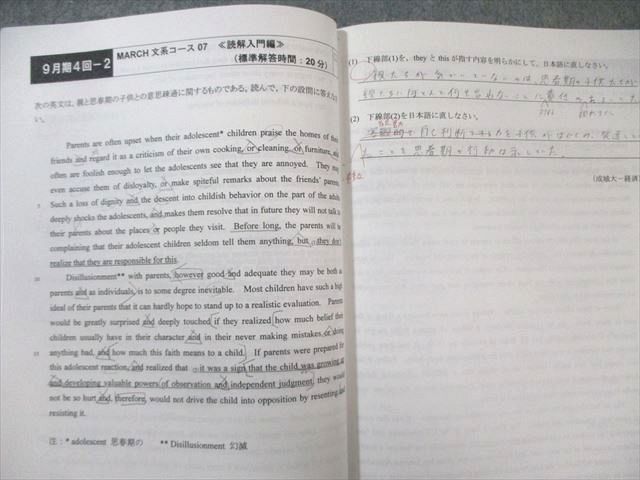 9月期4回-2
MARCH 文系コース 07 ≪読解入門編≫
(標準解答時間:20分)
次の英文は,親と思春期の子供との意思疎通に関するものである。読んで,下の設問に答えなさい
Parents are often upset when their adolescent* children praise the homes of their
friends and regard it as a criticism of their own cooking, or cleaning, or furniture, and
often are foolish enough to let the adolescents see that they are annoyed. They may
even accuse them of disloyalty, or make spiteful remarks about the friends' parents.
5 Such a loss of dignity and the descent into childish behavior on the part of the adults
deeply shocks the adolescents, and makes them resolve that in future they will not talk to
their parents about the places or people they visit. Before long, the parents will be
complaining that their adolescent children seldom tell them anything, but they don't
realize that they are responsible for this.
10 Disillusionment** with parents, however good and adequate they may be both as
parents and as individuals, is to some degree inevitable. Most children have such a high
ideal of their parents that it can hardly hope to stand up to a realistic evaluation. Parents
would be greatly surprised and deeply touched if they realized how much belief their
children usually have in their character and in their never making mistakes, or doing
15 anything bad, and how much this faith means to a child. If parents were prepared for
this adolescent reaction, and realized that it was a sign that the child was growing up
and developing valuable powers of observation and independent judgment, they would
not be so hurt and, therefore, would not drive the child into opposition by resenting and
resisting it.
注:* adolescent 思春期の ** Disillusionment 幻滅
(1) 下線部(1)を,they と this が指す内容を明らかにして,日本語に直しなさい。
(2) 下線部(2)を日本語に直しなさい。
(成城大-経済)